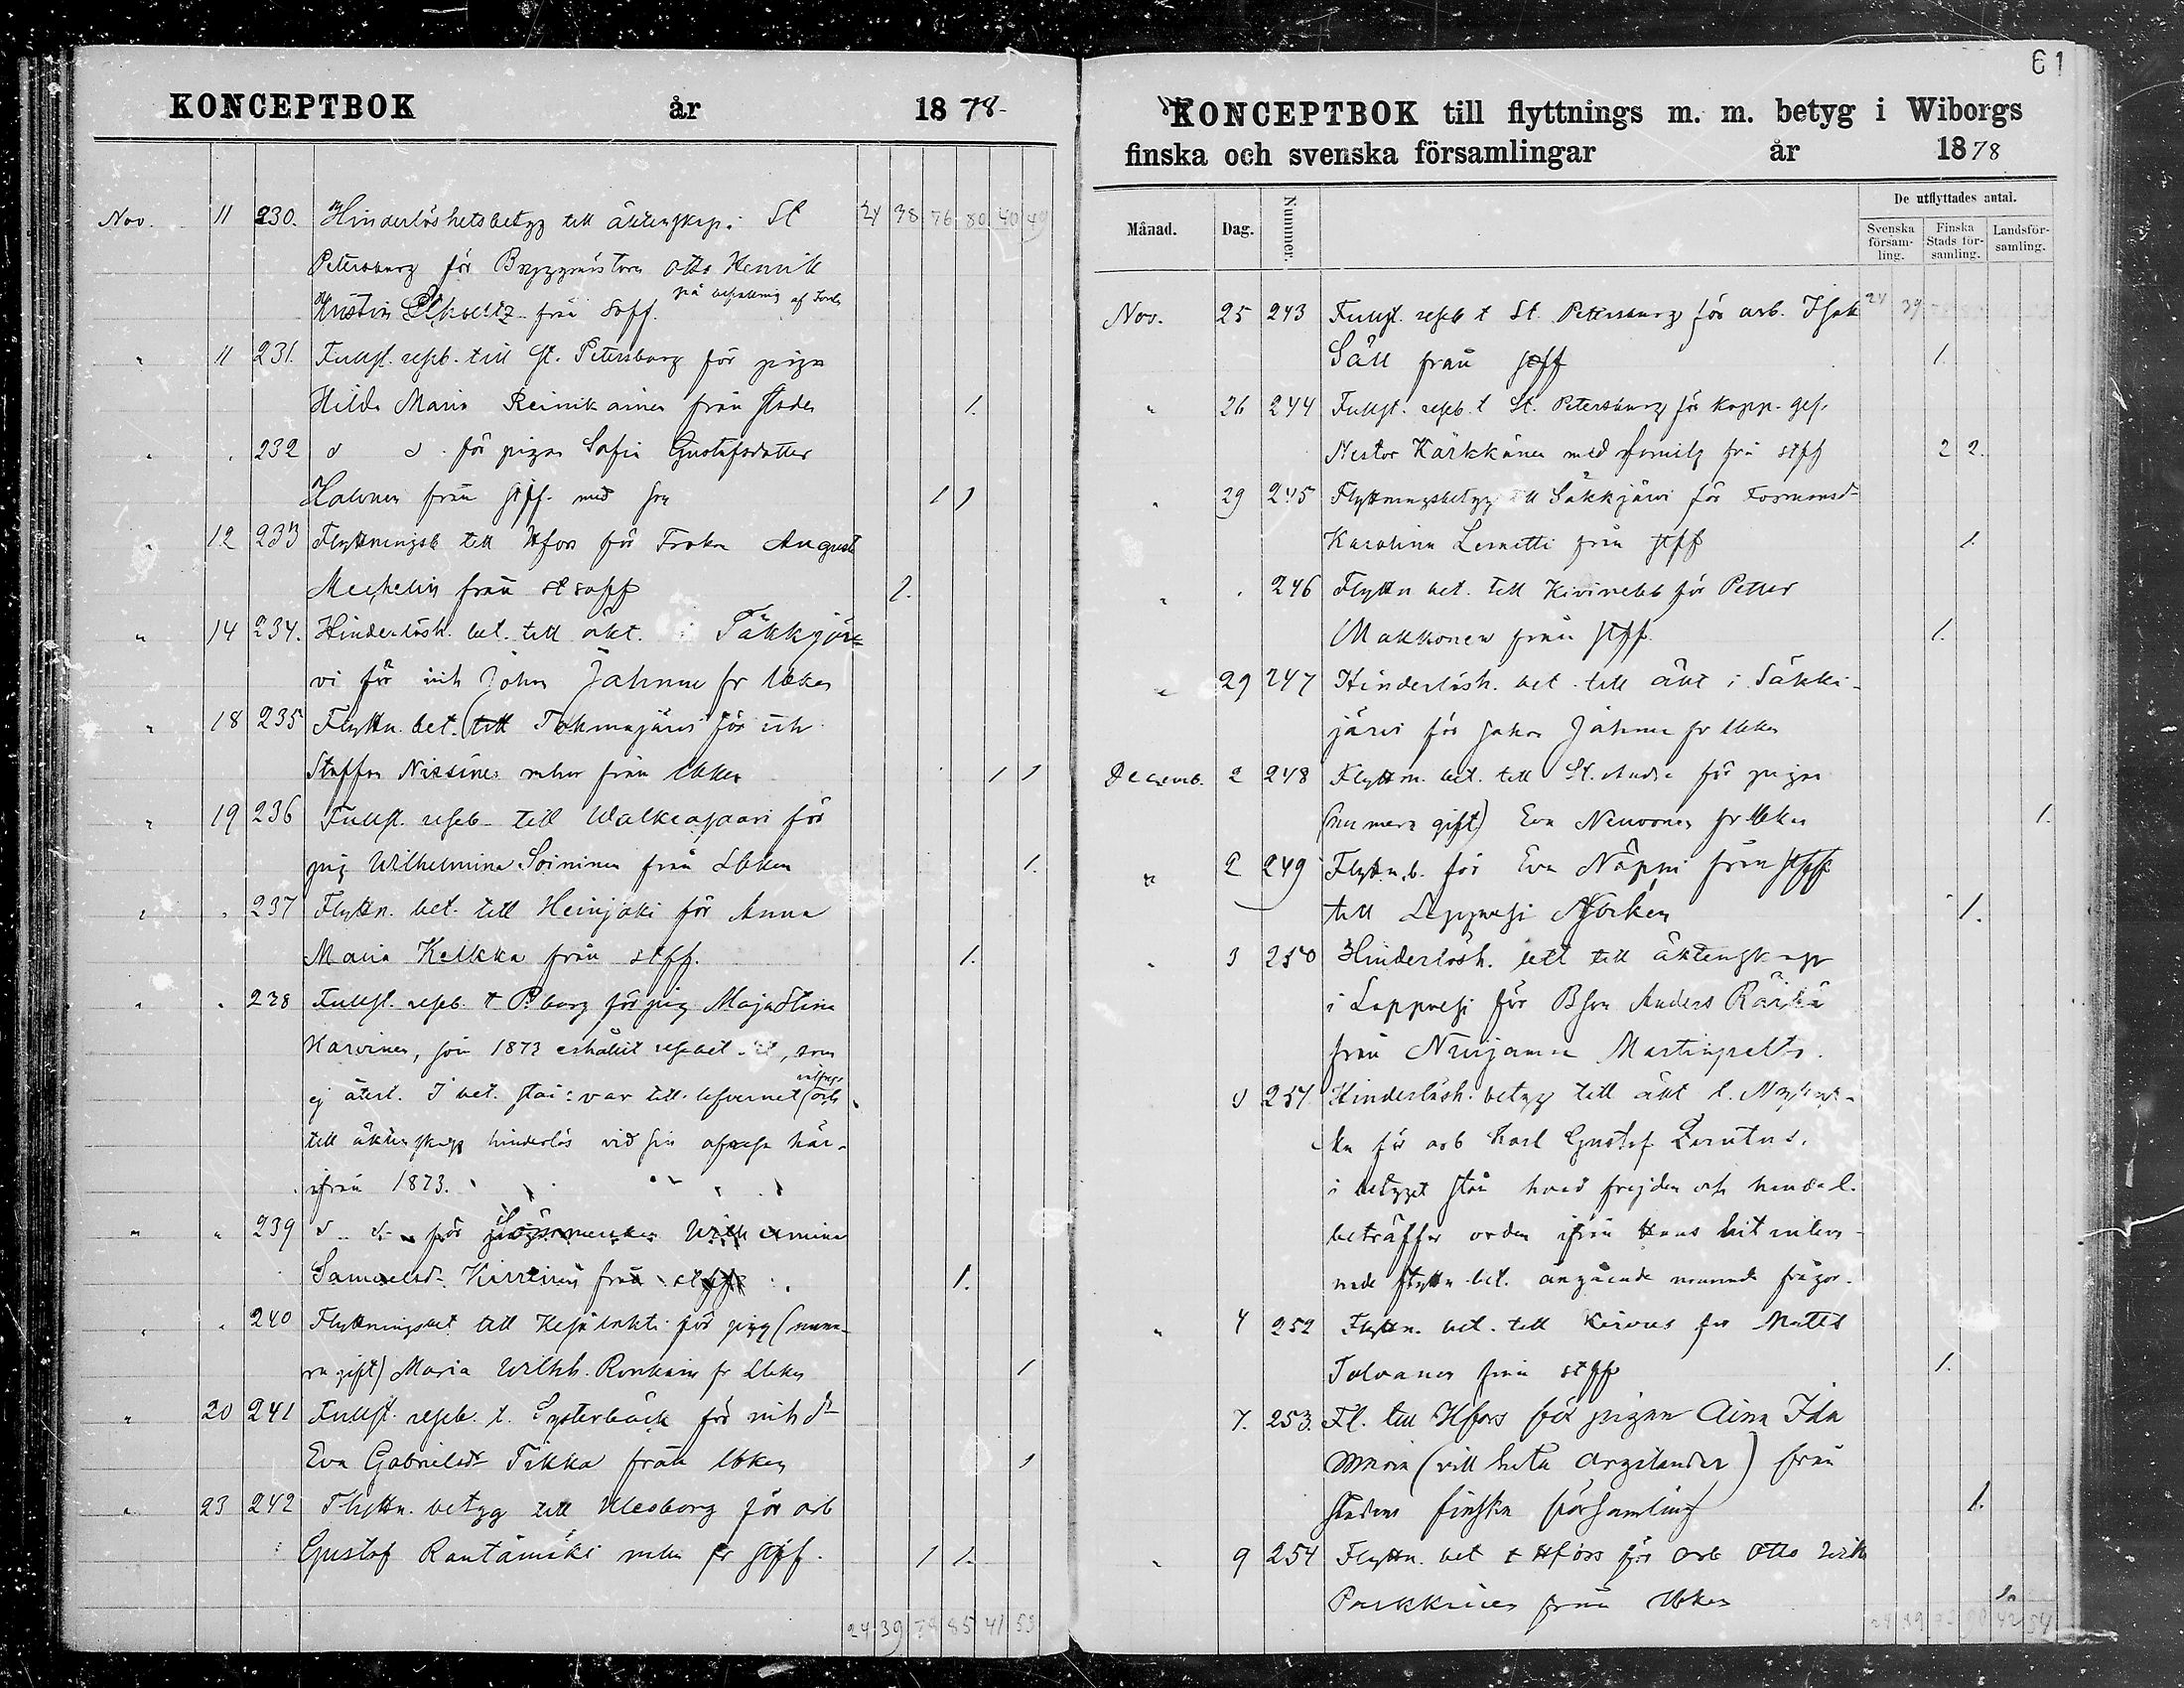 61
KONCEPTBOK år 1878-
Nov. 11 230. Hinderlöshetsbetyg till äktenskap i St 24 38 76 80 40 49
Petersburg för Bryggmästaren Otto Henrik
på befallning af
Kristin från Soff.
" 11 231. Fullst. reseb. till St. Petersburg för pigan
Hilda Maria Reinikainen från staden 1.
" " 232 d d för pigan Sofia Gustafsdotter
Halonen från stff. med son 1 1
" 12 233 Flyttningsb till Hfors för Froken August
Mechelin från st soff 2.
" 14 234. Hinderlösh. bet. till äkt. i Säkkjär=
vi för inh Johan Jähnne fr Lbken
" 18 235 Flyttn. bet. till Tohmajärvi för inh
Staffan Nissinen från Lbken 1 1
" 19 236 Fullst. reseb. till Walkeasaari för
pig Wilhelmina Soininen från Lbken 1.
" " 237 Flyttn. bet. till Heinjoki för Anna
Maria Kelkka från stff. 1.
" " 238 Fullst. reseb. t P.burg för pig Maja Stina
Karvinen, som 1873 erhållit resebet , som
ej återl. I bet. står: var till lefvernet och
till äktenskap hinderlös vid sin afresa här-
ifrån 1873.
" " 239 d d för
Samuelsd. från stff 1.
" " 240 Flyttningsbet till för pig (numе-
ra gift) Maria Wilhh. Ronkain fr Lbken 1
" 20 241 Fullst. reseb. t. Systerbäck för inh dr
Eva Gabrielsdr Tikka från lbken 1
" 23 242 Flyttn. betyg till Uleåborg för arb
Gustaf Rautamäki fr stff. 1 1.
24 39 78 85 41 53
KONCEPTBOK till flyttnings m. m. betyg i Wiborgs
finska och svenska församlingar år 1878
Månad. Dag. Nummer. De utflyttades antal.
Svenska församling. Finska Stads församling. Landsförsamling.
Nov. 25 243 Fullst. reseb t St. Petersburg för arb. Isak 24 39
Säll från stff 1.
" 26 244 Fullst. reseb. t St. Petersburg för kopp. ges.
Nestor Kärkkänen med familj fr stff 2 2.
" 29 245 Flyttningsbetyg till Säkkjärvi för Formansd-
Karolina Lemetti från stff 1.
" " 246 Flyttn bet. till Kivinebb för Petter
Makkonen från stff. 1.
" 29 247 Hinderlösh. bet. till äkt i Säkki-
järvi för Johan Jähnne fr lbken
Decemb. 2 248 Flyttn. bet. till St. Andre för pigan
(nu mera gift) Eva Neuvonen fr lbken 1.
" 2 249 Flyttn.b. för Eva Näppi från stff
till 1.
" 3 250 Hinderlösh. bett till äktenskap
i Lappvesi för Bson Anders
från Nurjamaa Martinpelto.
d 251 Hinderlösh. betyg till äkt i
för arb Karl Gustaf
i betyget står hvad frejden och hinderl.
beträffar orden ifrån Hans hit inlem-
nade flyttn bet. angående nämnde frågor.
" 4 252 Flyttn. bet. till Kirvus för Matts
Tolvanen från stff 1.
7. 253. Fl. till Hfors för pigan Aina Ida
Maria (vill heta Argelander) från
stadens finska församling 1.
" 9 254 Flyttn. bet t Hfors för arb Otto Wilh
Parkkinen från lbken 1.
24 39 42 54